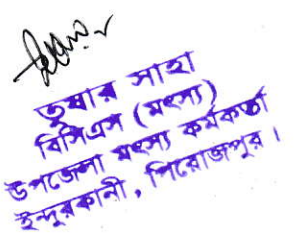 তুষার সাহা
বিসিএস (মৎস্য)
উপজেলা মৎস্য কর্মকর্তা
ইন্দুরকানী, পিরোজপুর।